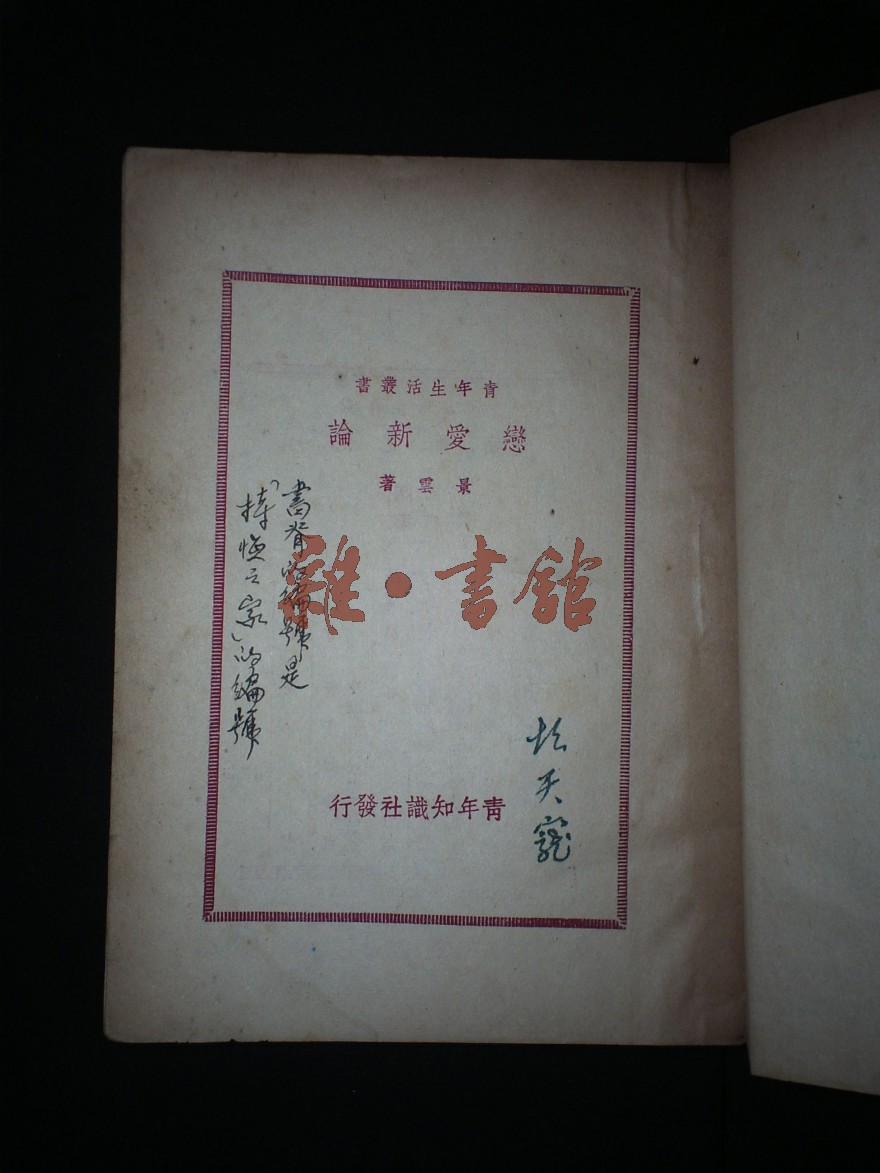 青年生活叢書
戀愛新論
景雲著
雜·書館
書脊的編號是
「持恆之家」的編號
天寵
青年知識社發行